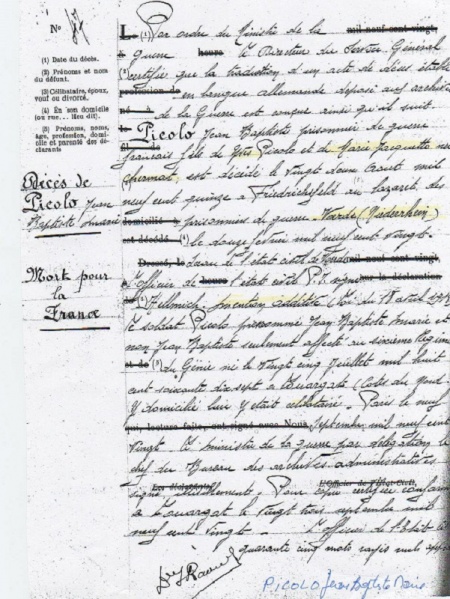 No
(1) Date du décès.
(2) Prénoms et nom du défunt.
(3) Célibataire, époux, veuf ou divorcé.
(4) En son domicile (ou rue... lieu dit).
(5) Prénoms, noms, âge, profession, domicile et parenté des déclarants
Décès de
Picolo Jean
Baptiste Marie
Mort pour
la
France
Le (1) Par ordre du Ministre de la mil neuf cent vingt,
guerre heure le Directeur du Service Général
certifie que la traduction d'un acte de décès établi
profession de en langue allemande déposé aux archives
né à de la Guerre est conçue ainsi qu'il suit
Picolo Jean Baptiste prisonnier de guerre
fils de français fils de Yves Picolo et de Marie
est décédé le vingt deux Août mil
neuf cent quinze à Friedrichsfeld au lazaret des
domicilié à prisonniers de guerre
et décédé (4) le douze février mil neuf cent vingt
Dressé, le mil neuf cent vingt,
L'officier de heure l'état civil sur la déclaration
de (5) mention additive (loi du 18 avril 1918
le soldat Picolo prénommé Jean Baptiste Marie et
non Jean Baptiste seulement affecté au sixième Régiment
et de (5) du Génie né le vingt cinq Juillet mil huit
cent soixante dix sept à Louargat (Côtes du Nord
y domicilié lui y était célibataire. Paris le neuf
qui, lecture faite, ont signé avec Nous, septembre mil neuf cent
vingt le ministre de la guerre par délégation le
chef du Bureau des archives administratives
Les déclarants, L'Officier de l'Etat-Civil,
signé Pour copie certifiée conforme
à Louargat le vingt trois septembre mil
neuf cent vingt. L'officier de l'état c
quarante cinq mots rayés nuls
PICOLO Jean Baptiste Marie